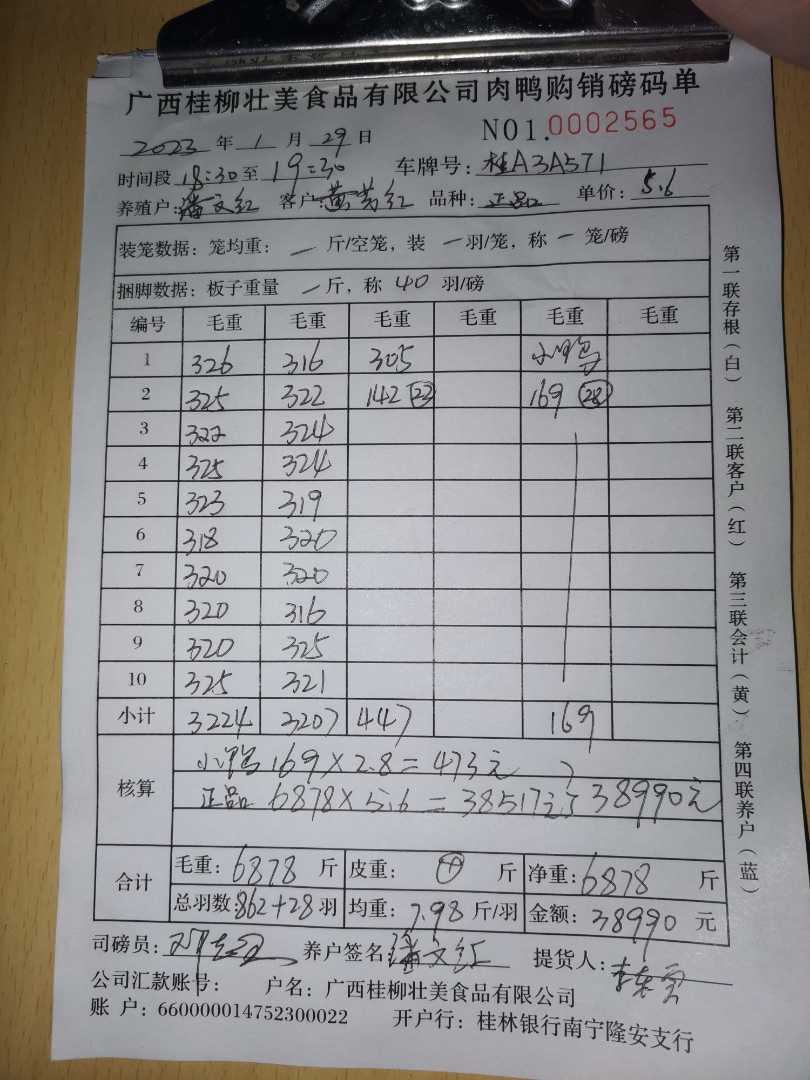 广西桂柳壮美食品有限公司肉鸭购销磅码单
2023 年 1 月 29 日 NO1.0002565
时间段 18:30 至 19:30 车牌号: 桂A3A571
养殖户: 潘文红 客户: 黄 红 品种: 正品 单价: 5.6
装笼数据: 笼均重: 一 斤/空笼, 装 一 羽/笼, 称 一 笼/磅
捆脚数据: 板子重量 一 斤, 称 40 羽/磅
编号 毛重 毛重 毛重 毛重 毛重 毛重
1 326 316 305 小鸭
2 325 322 142 23 169 28
3 322 324
4 325 324
5 323 319
6 318 320
7 320 320
8 320 316
9 320 325
10 325 321
小计 3224 3207 447 169
核算 小鸭 169×2.8=473元
正品 6878×5.6=38517元 38990元
合计 毛重: 6878 斤 皮重: 斤 净重: 6878 斤
总羽数: 862+28 羽 均重: 7.98 斤/羽 金额: 38990 元
司磅员: 养户签名: 潘文红 提货人:
公司汇款账号: 户名: 广西桂柳壮美食品有限公司
账 户: 660000014752300022 开户行: 桂林银行南宁隆安支行
第一联存根(白) 第二联客户(红) 第三联会计(黄) 第四联养户(蓝)